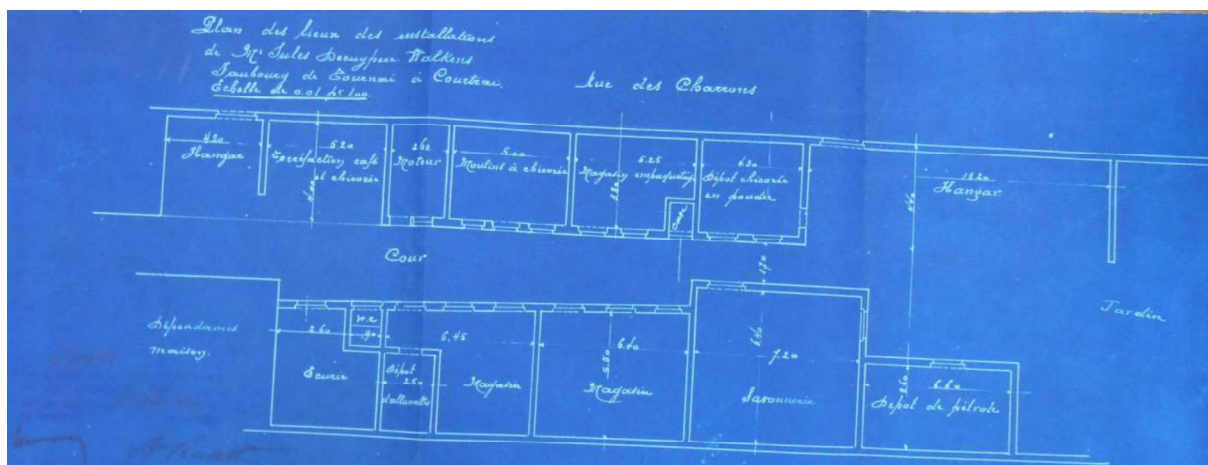 Plan des lieux des installations
de Mr Jules Decuypere Halkens
Faubourg de Tournai à Courtrai.
Echelle de 0.01 pr 1m
Rue des Charrons
4.20
Hangar
5.20
Torréfaction café
et chicorée
Moteur
Moulins à chicorée
5.25
Magasin empaquetage
4.30
Dépôt chicorée
en poudre
12.20
Hangar
Cour
1.70
Jardin
Dépendances
maison.
2.60
Ecurie
W.C
90
Dépôt
2.50
d'allumettes
6.45
Magasin
6.40
5.80
Magasin
6.40
7.20
Savonnerie
6.60
Dépot de pétrole